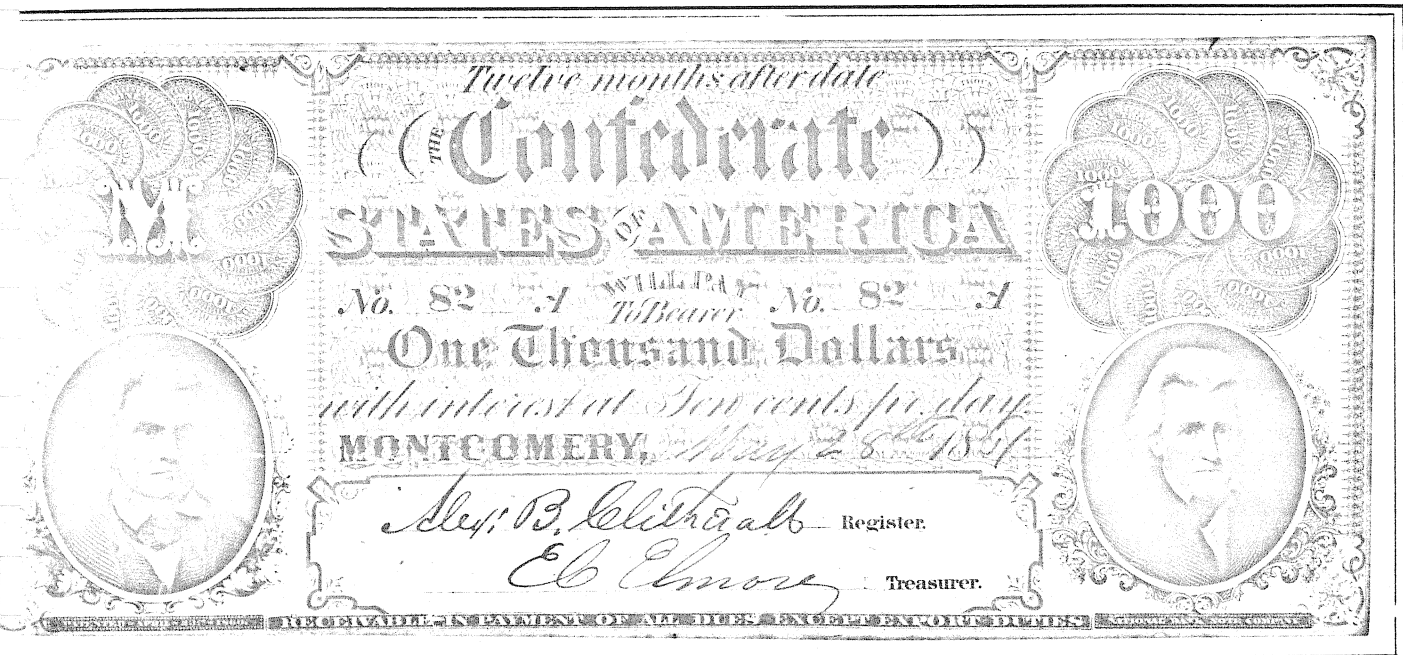 Twelve months after date
THE Confederate
STATES OF AMERICA
M
1000
No. 82 A WILL PAY To Bearer No. 82 A
One Thousand Dollars
with interest at Ten cents pr. day
MONTGOMERY, May 28th 1861
Alexr. B. Clitherall Register.
E C Elmore Treasurer.
RECEIVABLE IN PAYMENT OF ALL DUES EXCEPT EXPORT DUTIES
NATIONAL BANK NOTE COMPANY